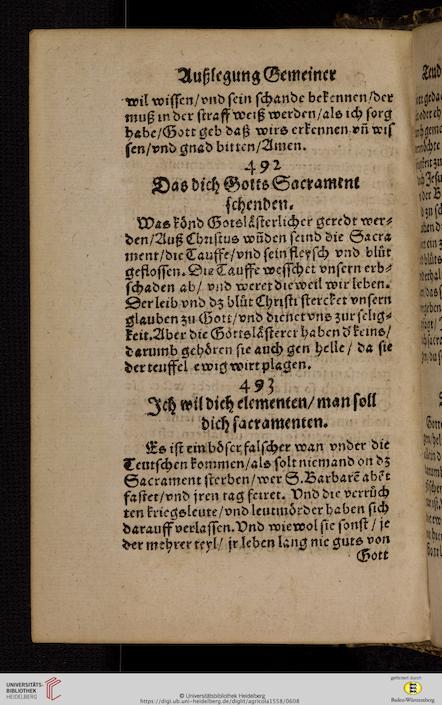 Außlegung Gemeiner
wil wissen/vnd sein schande bekennen/der
muß in der straff weiß werden/als ich sorg
habe/Gott geb daß wirs erkennen vn̄ wis
sen/vnd gnad bitten/Amen.
492
Das dich Gotts Sacrament
schenden.
Was könd Gotslästerlicher geredt wer-
den/Auß Christus wūden seind die Sacra
ment/die Tauffe/vnd sein fleysch vnd blůt
geflossen. Die Tauffe weschet vnsern erb-
schaden ab/ vnd weret dieweil wir leben.
Der leib vnd dz blůt Christi stercket vnsern
glauben zu Gott/vnd dienet vns zur selig-
keit. Aber die Gottslästerer haben d' keins/
darumb gehören sie auch gen helle/ da sie
der teuffel ewig wirt plagen.
493
Ich wil dich elementen/man soll
dich sacramenten.
Es ist ein böser falscher wan vnder die
Teutschen kommen/als solt niemand on dz
Sacrament sterben/wer S. Barbarē abēt
fastet/vnd jren tag feiret. Vnd die verrůch
ten kriegsleute/vnd leutmörder haben sich
darauff verlassen. Vnd wiewol sie sonst/ je
der mehrer teyl/ jr leben lang nie guts von
Gott
UNIVERSITÄTS-
BIBLIOTHEK
HEIDELBERG
© Universitätsbibliothek Heidelberg
https://digi.ub.uni-heidelberg.de/diglit/agricola1558/0608
gefördert durch
Baden-Württemberg